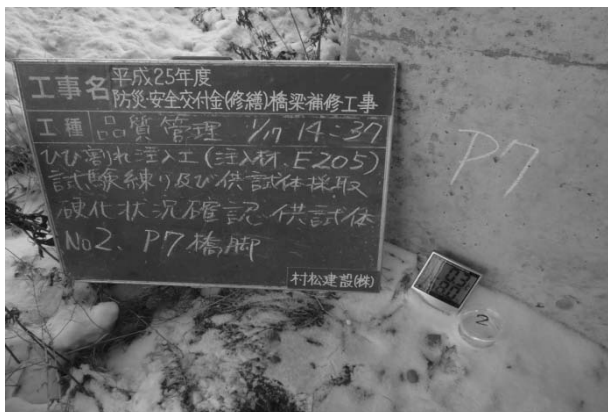 工事名
平成25年度
防災・安全交付金(修繕)橋梁補修工事
工種 品質管理 1/17 14:37
ひび割れ注入工(注入材、E205)
試験練り及び供試体採取
硬化状況確認 供試体
No2、P7橋脚
村松建設(株)
P7
2